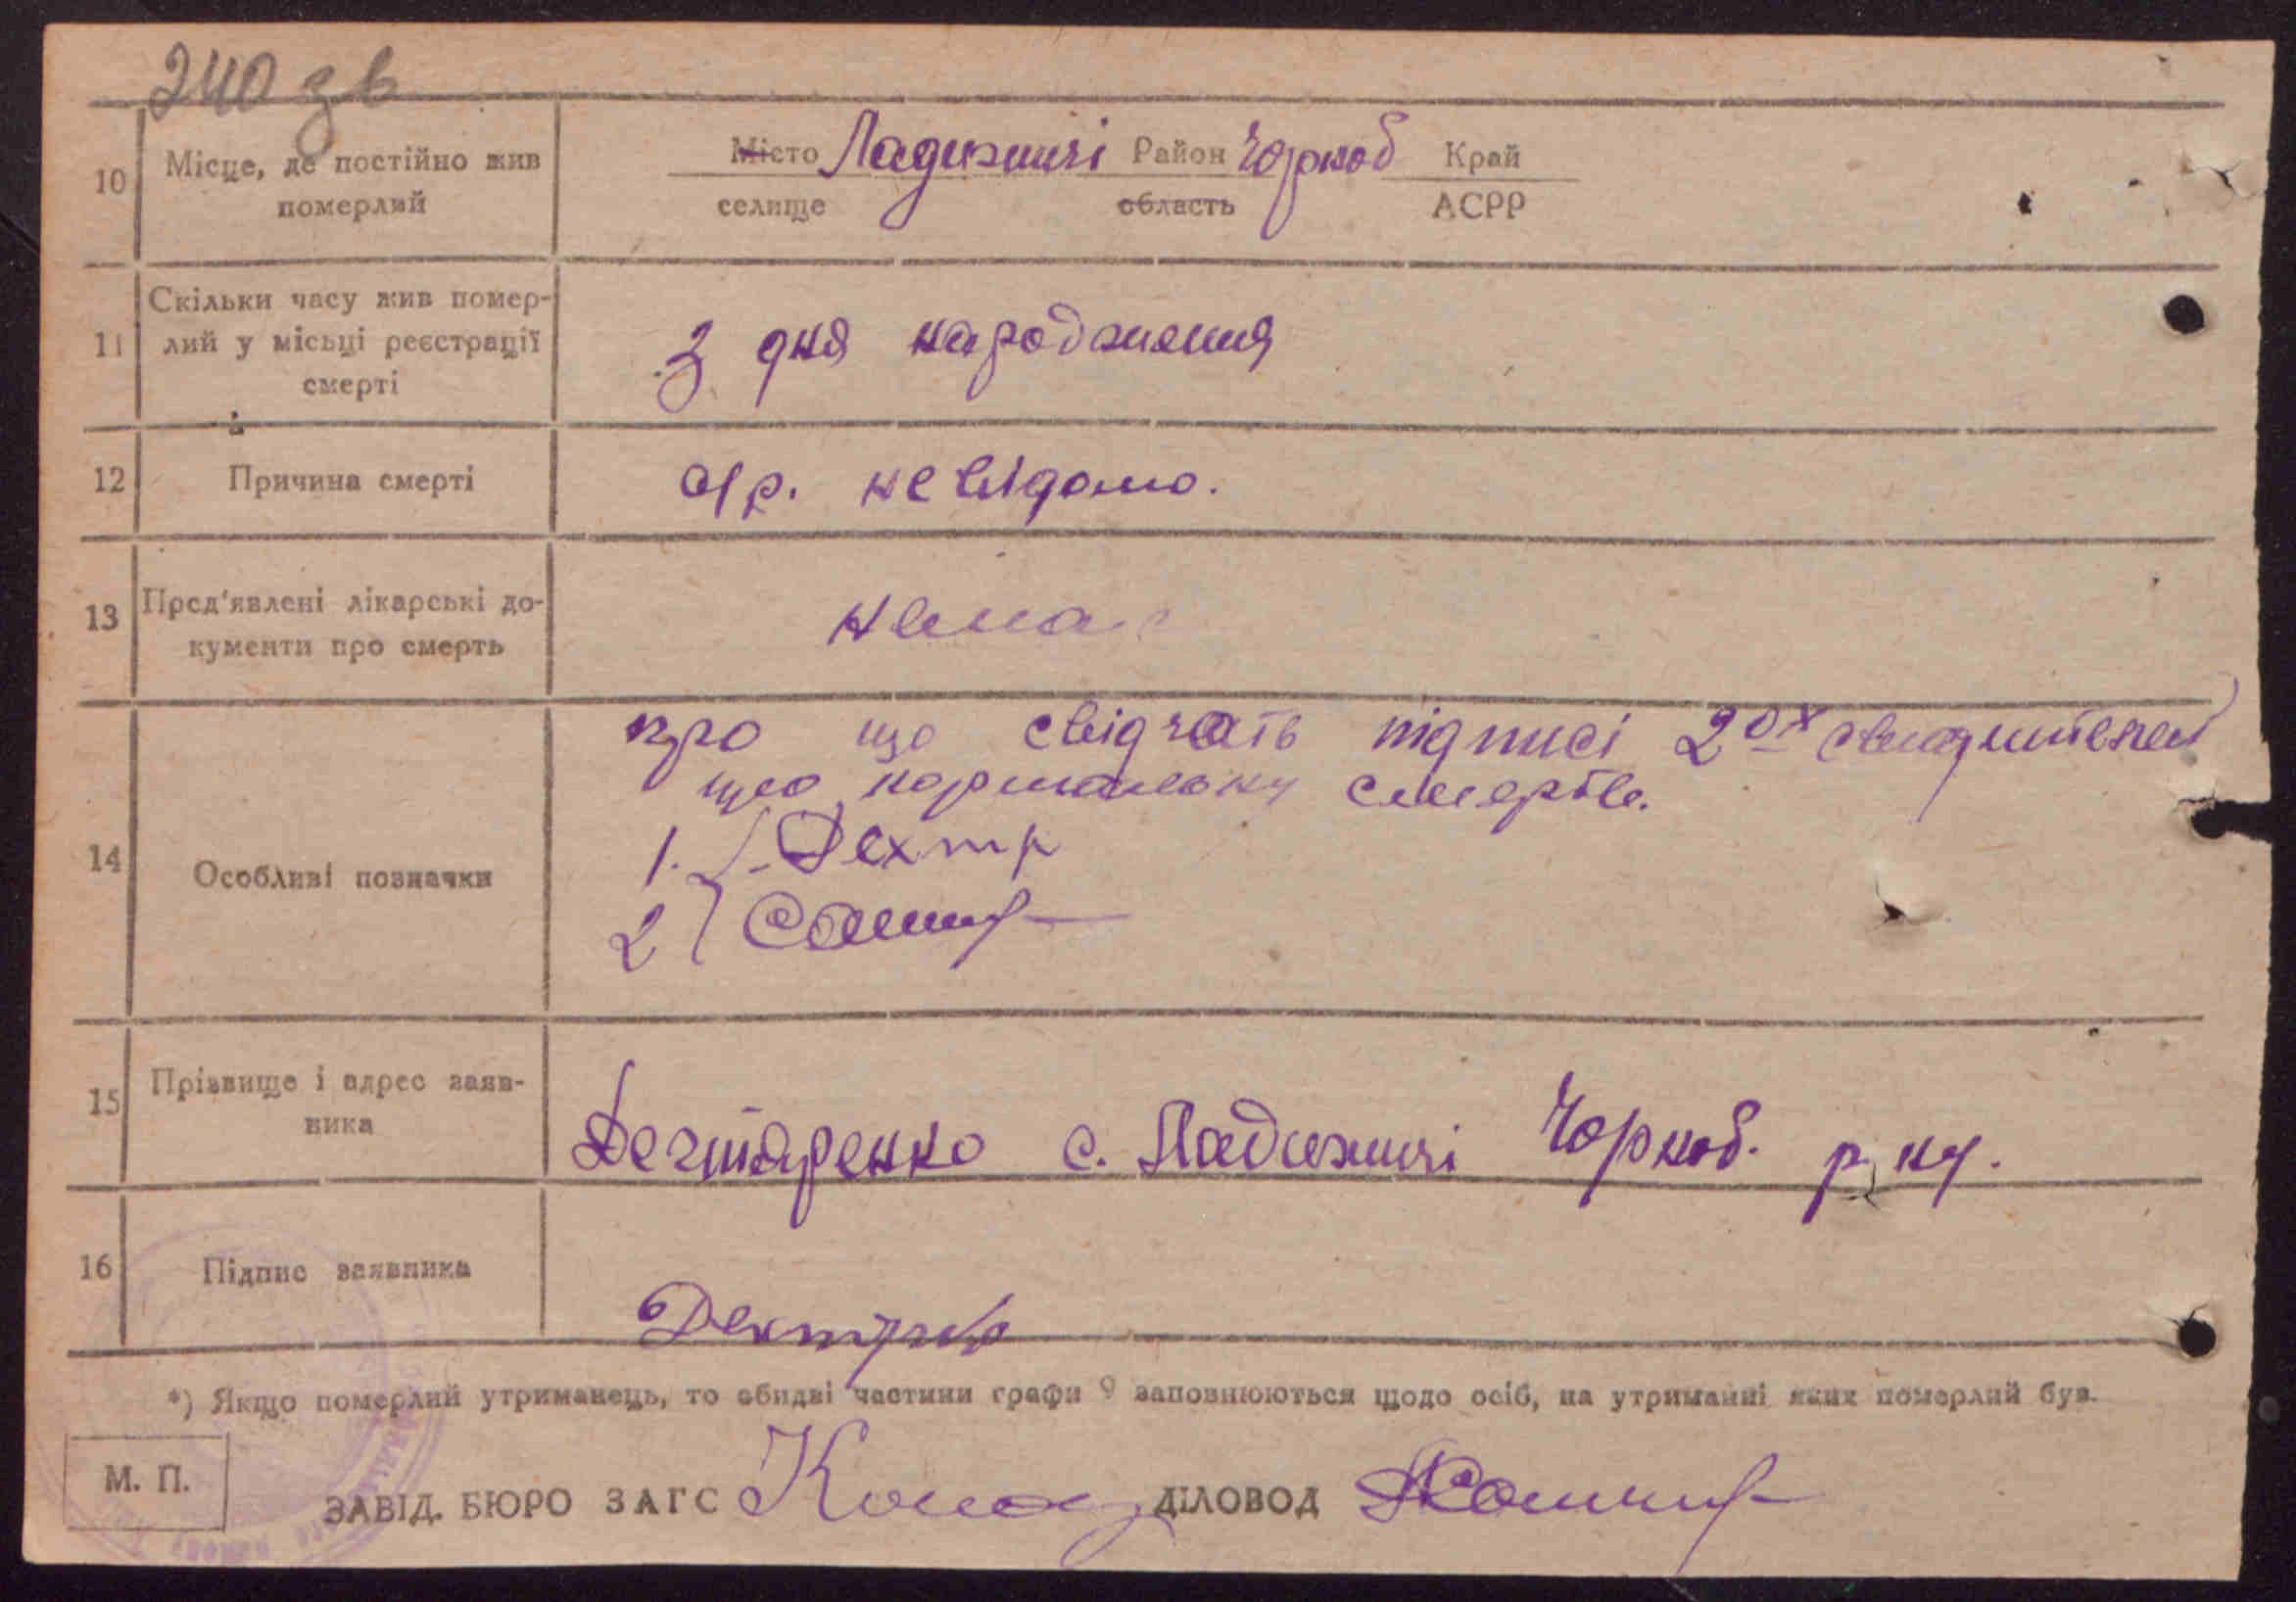 240 зв
10 Місце, де постійно жив померлий
Місто Ладижичі Район Чорноб Край
селище область АСРР
11 Скільки часу жив помер-
лий у місьці реєстрації
смерті
З дня народження
12 Причина смерті
не відомо.
13 Пред'явлені лікарські до-
кументи про смерть
нема
14 Особливі позначки
про що свідчать підписі 2ох
що нормальну смерть.
1. Дехтр
2
15 Прізвище і адрес заяв-
ника
Дегтяренко с. Ладижичі Чорноб. р-ну.
16 Підпис заявника
*) Якщо померлий утриманець, то обидві частини графи 9 заповнюються щодо осіб, на утриманні яких померлий був.
М. П.
ЗАВІД. БЮРО ЗАГС ДІЛОВОД